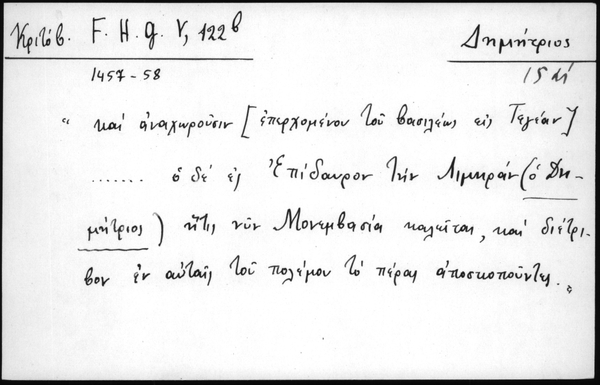 Κριτόβ. F. H. G. V, 122β
Δημήτριος
1457-58
15 αἰ
" καί ἀναχωροῦσιν [ἐπερχομένου τοῦ βασιλέως εἰς Τεγέαν]
....... ὁ δέ ἐς Ἐπίδαυρον τήν Λιμηράν (ὁ Δη-
μήτριος) ἥτις νῦν Μονεμβασία καλεῖται, καί διέτρι-
βον ἐν αὐταῖς τοῦ πολέμου τό πέρας ἀποσκοποῦντες."